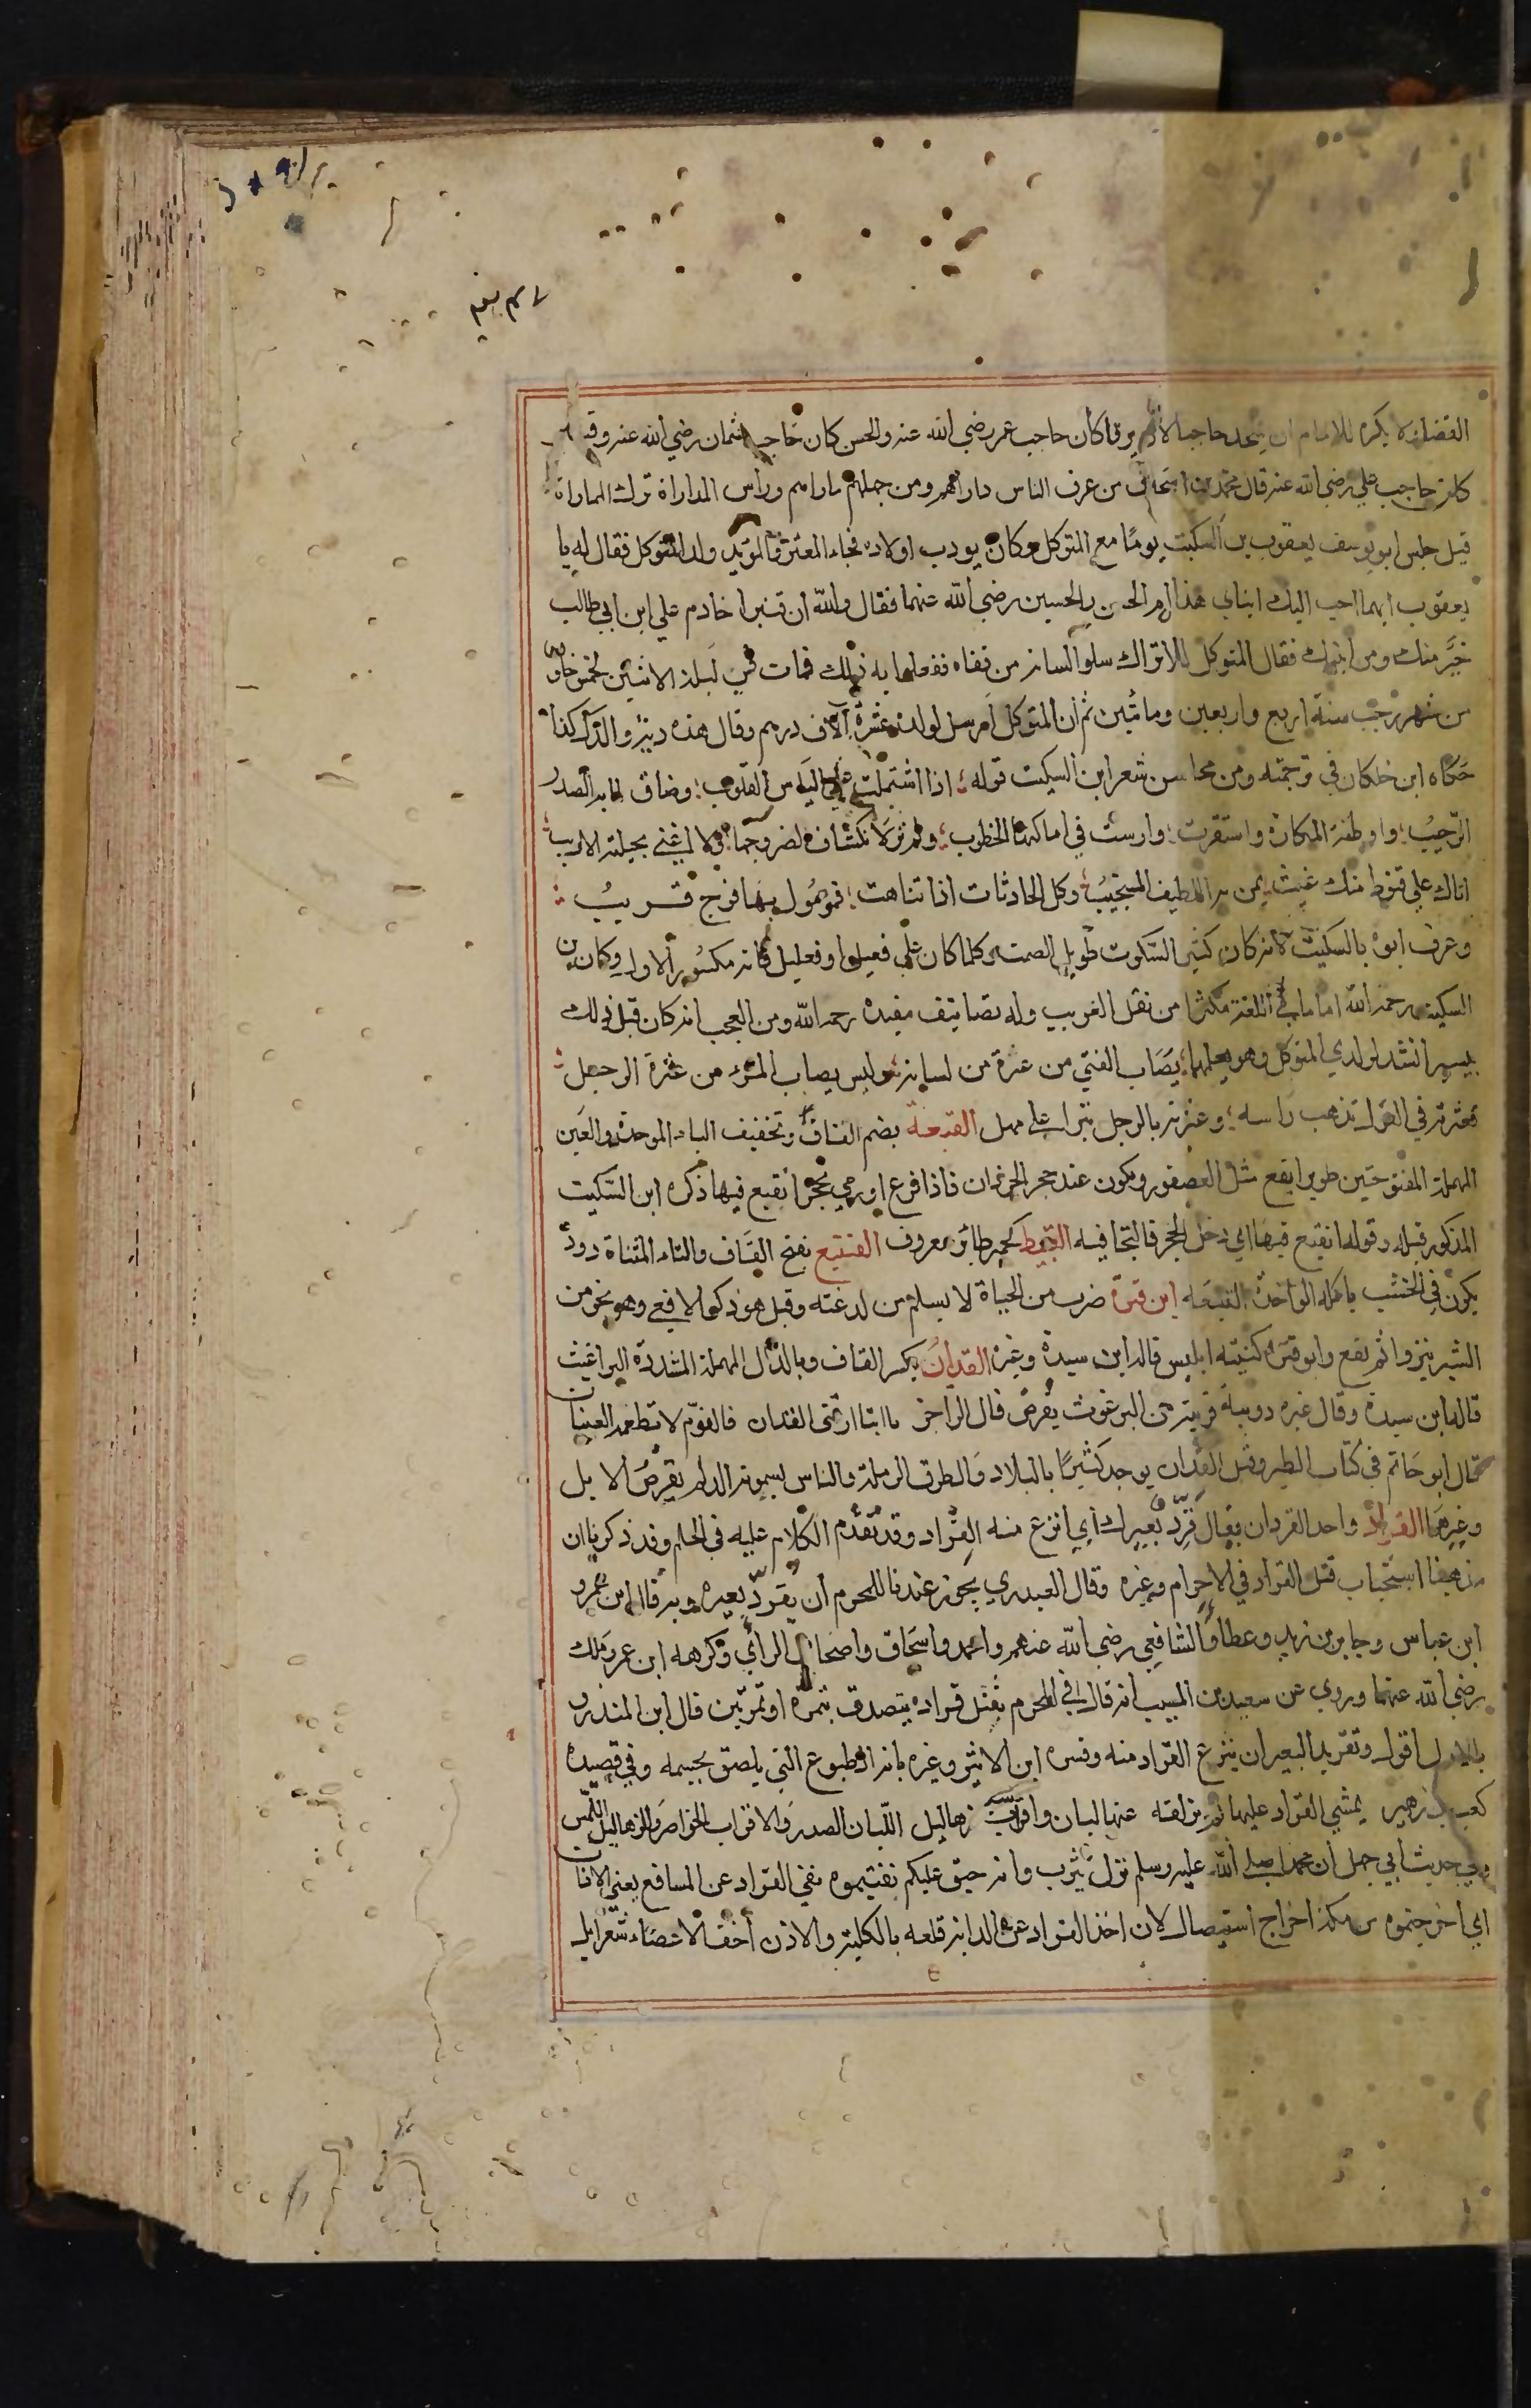 القضاء لا يكره للامام ان يتخذ حاجبا لان يرفا كان حاجب عمر رضي الله عنه والحسن كان حاجب عثمان رضي الله عنه وقنبر
كان حاجب علي رضي الله عنه قال محمد بن اسحاق من عرف الناس داراهم ومن جهلهم ماراهم وراس المداراة ترك المماراة
قيل جلس ابو يوسف يعقوب بن السكيت يومًا مع المتوكل وكان يودب اولاده فجاء المعتز والمؤيد ولد المتوكل فقال له يا
يعقوب ايهما احب اليك ابناي هذا ام الحسن والحسين رضي الله عنهما فقال والله ان قنبرا خادم علي ابن ابي طالب
خير منك ومن ابنيك فقال المتوكل للاتراك سلوا لسانه من قفاه ففعلوا به ذلك فمات في ليلة الاثنين لخمس خلون
من شهر رجب سنة اربع واربعين ومائتين ثم ان المتوكل ارسل لولده عشرة آلاف درهم وقال هذه دية والدك كذا
حكاه ابن خلكان في ترجمته ومن محاسن شعر ابن السكيت قوله اذا اشتملت على الياس القلوب وضاق لما به الصدر
الرحيب واوطنة المكاره واستقرت وارست في اماكنها الخطوب ولم تر لانكشاف لضر وجها ولا اغني بحيلته الاريب
اتاك علي قنوط منك غيث يمن به اللطيف المستجيب وكل الحادثات اذا تناهت فموصول بها فرج قريب
وعرف ابوه بالسكيت لانه كان كثير السكوت طويل الصمت وكلما كان علي فعيل او فعليل فانه مكسور الاول وكان بن
السكيت رحمه الله اماما في اللغة مكثرا من نقل الغريب وله تصانيف مفيدة رحمه الله ومن العجب انه كان قبل ذلك
بيسير انشد لولدي المتوكل وهو يعلمهما يصاب الفتي من عثرة من لسانه وليس يصاب المرء من عثرة الرجل
فعثرته في القول تذهب راسه وعثرته بالرجل تبرا على مهل القبعة بضم القاف وتخفيف الباء الموحدة والعين
المهملة المفتوحتين طوير ابقع مثل العصفور ويكون عند حجر الجرذان فاذا فزع او رمي بحجر انقبع فيها ذكره ابن السكيت
المذكور قبله وقوله انقبع فيها اي دخل الحجر فالتجا فيه القبيط كحمير طائر معروف القتع بفتح القاف والتاء المثناة دود
يكون في الخشب ياكله الواحدة القتعه ابن قترة ضرب من الحياة لا يسلم من لدغته وقيل هو ذكر الافعي وهو نحو من
الشبر ينزوا ثم يقع وابو قترة كنيته ابليس قاله ابن سيدة وغيره القدان بكسر القاف وبالدال المهملة المشددة البراغيث
قاله ابن سيدة وقال غيره دويبة قريبة من البرغوث يقرص قال الراجز يا ابتا ارقني القدان فالنوم لا تطعمه العينان
قال ابو حاتم في كتاب الطير وقيل القدان يوجد كثيرًا بالبلاد والطرق الرملة والناس يسمونه الدلم يقرص الابل
وغيرها القراد واحد القردان يقال قرّد بعيرك اي انزع منه القراد وقد تقدم الكلام عليه في الحلم وقد ذكرنا ان
مذهبنا استحباب قتل القراد في الاحرام وغيره وقال العبدري يجوز عندنا للمحرم ان يقرد بعيره وبه قال ابن عمر و
ابن عباس وجابر بن زيد وعطا والشافعي رضي الله عنهم واحمد واسحاق واصحاب الراي وكرهه ابن عمر ومالك
رضي الله عنهما وروي عن سعيد بن المسيب انه قال في المحرم يقتل قرادة يتصدق بتمرة او تمرتين قال ابن المنذر و
بالاول اقول وتقريد البعير ان ينزع القراد منه وفسره ابن الاثير وغيره بانه الطبوع التي يلصق بجسمه وفي قصيدة
كعب بن زهير يمشي القراد عليها ثم يزلقه عنها لبان واقراب زهاليل اللبان الصدر والاقراب الخواصر والزهاليل اللمس
وفي حديث ابي جهل ان محمدا صلى الله عليه وسلم نزل يثرب وانه حنق عليكم نفيتموه نفي القراد عن المسامع يعني الاذان
اي اخرجتموه من مكة اخراج استيصال لان اخذ القراد عن الدابة قلعه بالكلية والاذن اخف الاعضاء شعرا بل